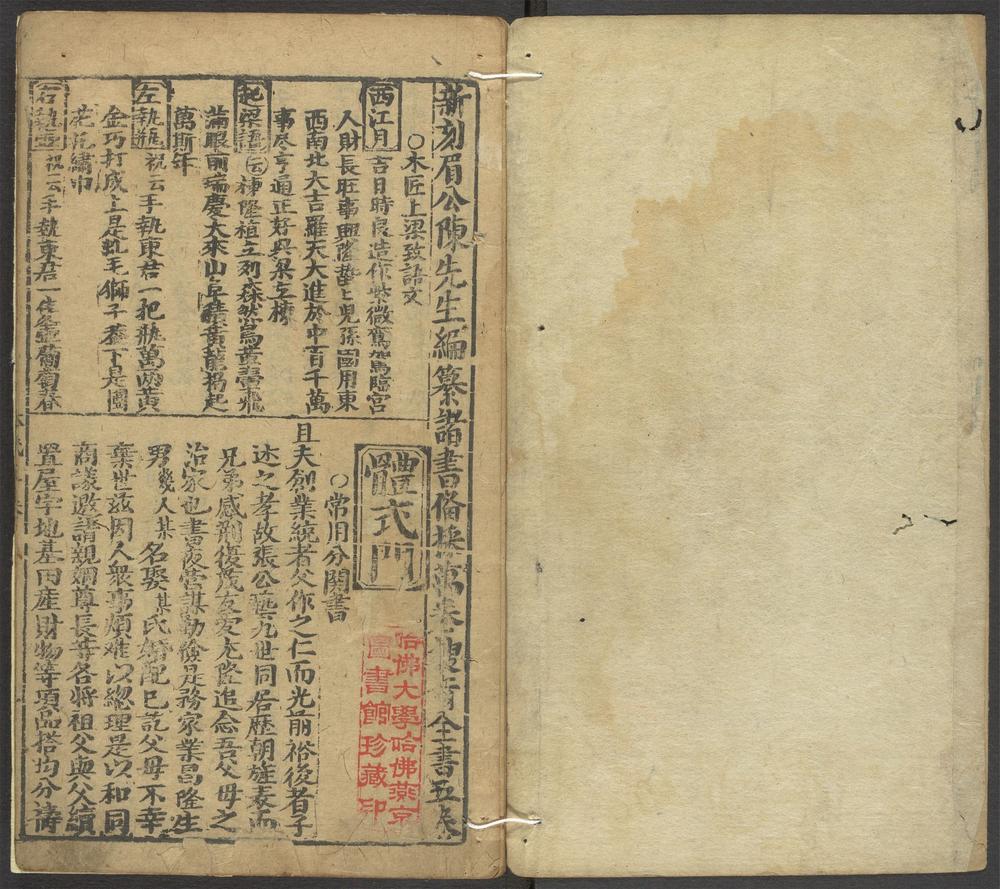 新刻眉公陳先生編纂諸書俻採萬卷搜奇全書五卷
○木匠上梁致語文
西江月吉日時良造作紫微鸞駕臨宮
人財長旺事興隆蟄〻兒孫國用東
西南北大吉羅天大進於中百千萬
事尽亨通正好與梁立棟
起梁語云棟隆植立列森然
滿眼前瑞慶大來山阜積黃龍揭起
萬斯年
左執瓶祝云手執東君一把瓶萬両黃
金巧打成上是乱毛獅子蓋下是團
花錦綉巾
右執壶祝云手執東君一
體式門
○常用分關書
且夫創業統者父作之仁而光前裕後者子
述之孝故張公藝九世同居歷朝旌表而
兄弟感荆復茂友愛尤隆追念吾父母之
治家也晝夜營謀勤儉是務家業昌隆生
男幾人某名娶某氏婚配已訖父母不幸
棄世兹因人衆事煩难以總理是以和同
商議邀請親姻尊長等各將祖父與父續
置屋宇地基田產財物等項品搭均分濤
哈佛大學哈佛燕京
圖書館珍藏印